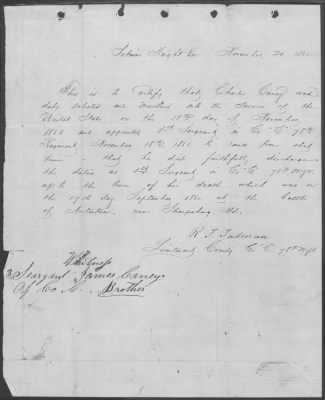 Falmouth Va November 20, 1862
This is to Certify that Charles Carey was
duly enlisted and mustered into the Service of the
United States on the 18th day of November
1861 and appointed 1st Sergeant in Co "C" 78th
Regiment November 18th, 1861 to rank from that
time, that he did faithfully discharge
the duties as 1st Sergeant in Co "C" 78th N.Y.V.
up to the time of his death, which was on
the 17th day September 1862 at the battle
of Antietam, near Sharpsburg Md.
R. T.
Lieutenant Comdg Co "C" 78th N.Y.V.
Witness
Seargant James Carey
Of Co C. Brother